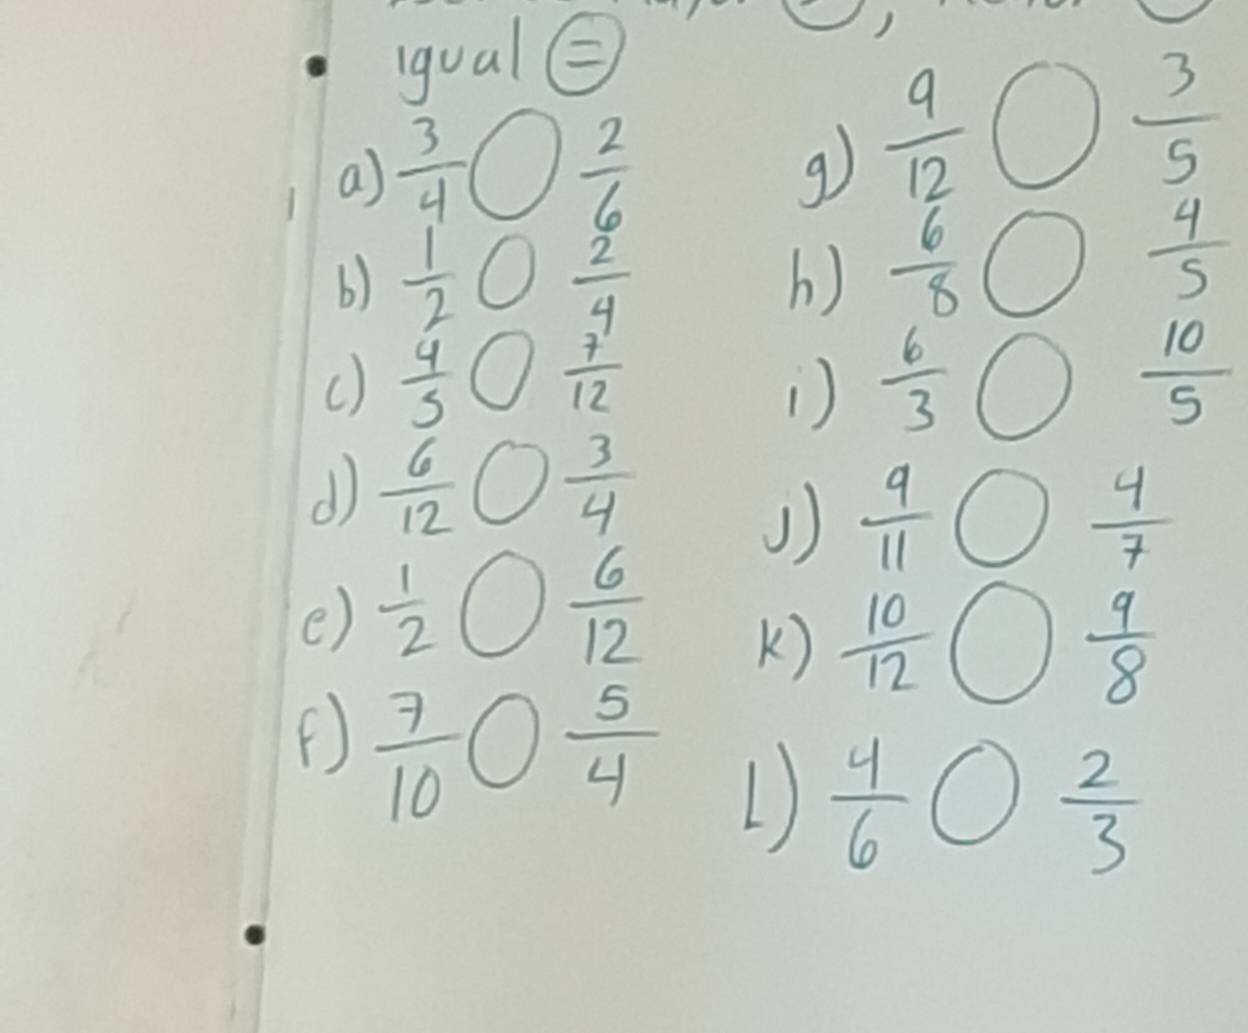 igual =
a) 3/4 ◯ 2/6
b) 1/2 ◯ 2/4
c) 4/5 ◯ 7/12
d) 6/12 ◯ 3/4
e) 1/2 ◯ 6/12
f) 7/10 ◯ 5/4
g) 9/12 ◯ 3/5
h) 6/8 ◯ 4/5
i) 6/3 ◯ 10/5
J) 9/11 ◯ 4/7
K) 10/12 ◯ 9/8
L) 4/6 ◯ 2/3